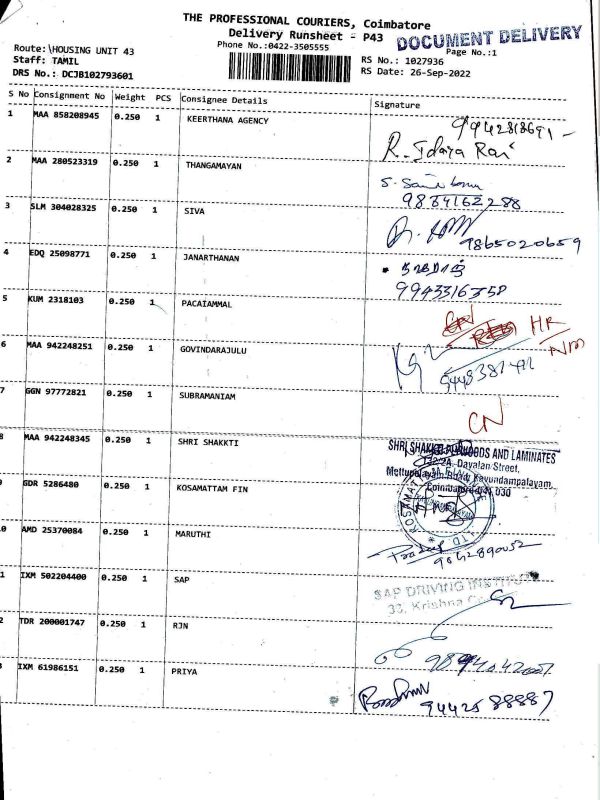 THE PROFESSIONAL COURIERS, Coimbatore
Delivery Runsheet - P43
DOCUMENT DELIVERY
Phone No.:0422-3505555
Page No.:1
Route:\HOUSING UNIT 43
Staff: TAMIL
DRS No.: DCJB102793601
RS No.: 1027936
RS Date: 26-Sep-2022
S No Consignment No Weight PCS Consignee Details Signature
1 MAA 858208945 0.250 1 KEERTHANA AGENCY
R.
2 MAA 280523319 0.250 1 THANGAMAYAN
S.
9834162288
3 SLM 304028325 0.250 1 SIVA 9865020659
4 EDQ 25098771 0.250 1 JANARTHANAN
5 KUM 2318103 0.250 1 PACAIAMMAL
HR
NM
6 MAA 942248251 0.250 1 GOVINDARAJULU
7 GGN 97772821 0.250 1 SUBRAMANIAM
CN
8 MAA 942248345 0.250 1 SHRI SHAKKTI
SHRI SHAKKTI PLYWOODS AND LAMINATES
132/2A, Dayalan Street,
Mettupalayam Road, Kavundampalayam,
Coimbatore-641 030
9 GDR 5286480 0.250 1 KOSAMATTAM FIN
KOSAMATTAM
LTD
10 AMD 25370084 0.250 1 MARUTHI
9842890052
11 IXM 502204400 0.250 1 SAP
SAP DRIVING INSTITUTE
33, Krishna
12 TDR 200001747 0.250 1 RJN
13 IXM 61986151 0.250 1 PRIYA
94425 88887